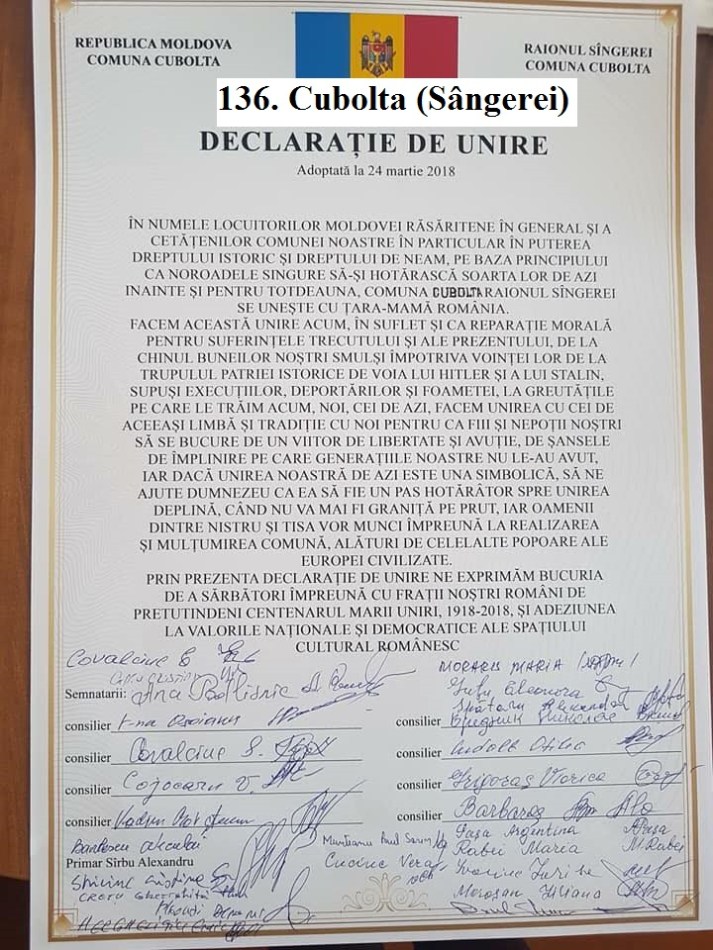 REPUBLICA MOLDOVA
COMUNA CUBOLTA
RAIONUL SÎNGEREI
COMUNA CUBOLTA
136. Cubolta (Sângerei)
DECLARAȚIE DE UNIRE
Adoptată la 24 martie 2018
ÎN NUMELE LOCUITORILOR MOLDOVEI RĂSĂRITENE ÎN GENERAL ȘI A
CETĂȚENILOR COMUNEI NOASTRE ÎN PARTICULAR ÎN PUTEREA
DREPTULUI ISTORIC ȘI DREPTULUI DE NEAM, PE BAZA PRINCIPIULUI
CA NOROADELE SINGURE SĂ-ȘI HOTĂRASCĂ SOARTA LOR DE AZI
INAINTE ȘI PENTRU TOTDEAUNA, COMUNA CUBOLTA RAIONUL SÎNGEREI
SE UNEȘTE CU ȚARA-MAMĂ ROMÂNIA.
FACEM ACEASTĂ UNIRE ACUM, ÎN SUFLET ȘI CA REPARAȚIE MORALĂ
PENTRU SUFERINȚELE TRECUTULUI ȘI ALE PREZENTULUI, DE LA
CHINUL BUNEILOR NOȘTRI SMULȘI ÎMPOTRIVA VOINȚEI LOR DE LA
TRUPULUL PATRIEI ISTORICE DE VOIA LUI HITLER ȘI A LUI STALIN,
SUPUȘI EXECUȚIILOR, DEPORTĂRILOR ȘI FOAMETEI, LA GREUTĂȚILE
PE CARE LE TRĂIM ACUM, NOI, CEI DE AZI, FACEM UNIREA CU CEI DE
ACEEAȘI LIMBĂ ȘI TRADIȚIE CU NOI PENTRU CA FIII ȘI NEPOȚII NOȘTRI
SĂ SE BUCURE DE UN VIITOR DE LIBERTATE ȘI AVUȚIE, DE ȘANSELE
DE ÎMPLINIRE PE CARE GENERAȚIILE NOASTRE NU LE-AU AVUT,
IAR DACĂ UNIREA NOASTRĂ DE AZI ESTE UNA SIMBOLICĂ, SĂ NE
AJUTE DUMNEZEU CA EA SĂ FIE UN PAS HOTĂRÂTOR SPRE UNIREA
DEPLINĂ, CÂND NU VA MAI FI GRANIȚĂ PE PRUT, IAR OAMENII
DINTRE NISTRU ȘI TISA VOR MUNCI ÎMPREUNĂ LA REALIZAREA
ȘI MULȚUMIREA COMUNĂ, ALĂTURI DE CELELALTE POPOARE ALE
EUROPEI CIVILIZATE.
PRIN PREZENTA DECLARAȚIE DE UNIRE NE EXPRIMĂM BUCURIA
DE A SĂRBĂTORI ÎMPREUNĂ CU FRAȚII NOȘTRI ROMÂNI DE
PRETUTINDENI CENTENARUL MARII UNIRI, 1918-2018, ȘI ADEZIUNEA
LA VALORILE NAȚIONALE ȘI DEMOCRATICE ALE SPAȚIULUI
CULTURAL ROMÂNESC
Covalciuc
MORARU MARIA
Semnatarii:
Eleonora
consilier
consilier
consilier Covalciuc S.
consilier
consilier Cojocaru V.
consilier Grigoraș Viorica
consilier
consilier Barbaroș
Pașa Argentina
Primar Sîrbu Alexandru
Rabei Maria M. Rabei
Vera
Moroșan Iuliana